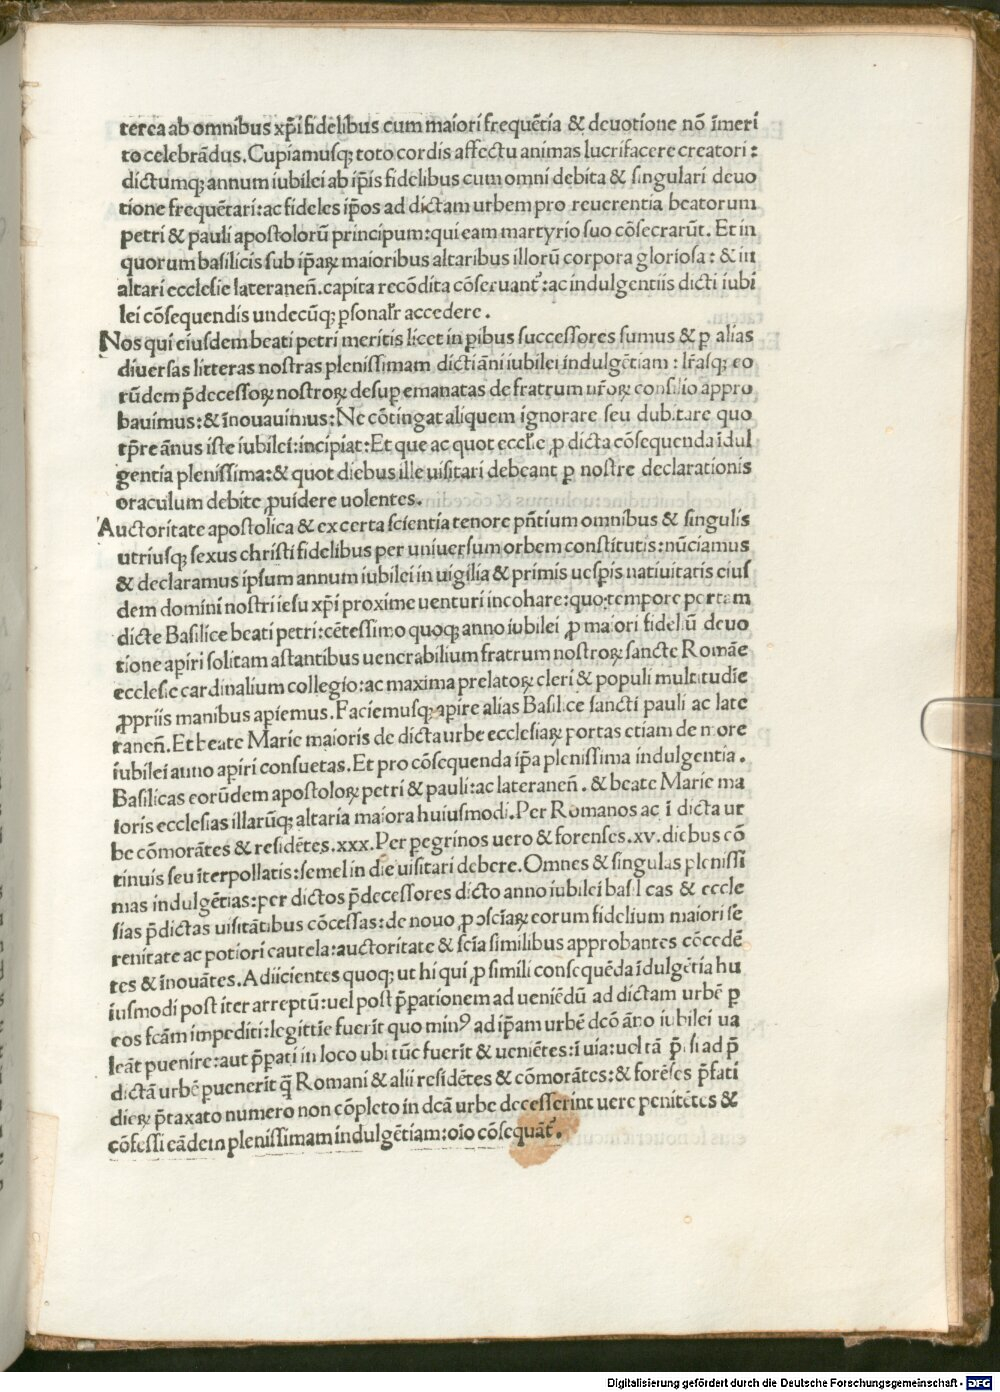 terea ab omnibus xp̄i fidelibus cum maiori frequētia & deuotione nō īmeri
to celebrādus. Cupiamusq; toto cordis affectu animas lucrifacere creatori:
dictumq; annum iubilei ab ip̄is fidelibus cum omni debita & singulari deuo
tione frequētari: ac fideles ip̄os ad dictam urbem pro reuerentia beatorum
petri & pauli apostolorū principum: qui eam martyrio suo cōsecrarūt. Et in
quorum basilicis sub ip̄aꝝ maioribus altaribus illorū corpora gloriosa: & in
altari ecclesie lateraneñ. capita recōdita cōseruant᷑: ac indulgentiis dicti iubi
lei cōsequendis undecūq; ꝑsonalr̄ accedere.
Nos qui eiusdem beati petri meritis licet in ꝑibus successores sumus & ꝑ alias
diuersas litteras nostras plenissimam dicti āni iubilei indulgētiam: lr̄asq; eo
rūdem p̄decessoꝝ nostroꝝ desuꝑ emanatas de fratrum nr̄oꝝ consilio appro
bauimus: & īnouauimus: Ne cōtingat aliquem ignorare seu dubitare quo
tp̄re ānus iste iubilei: incipiat: Et que ac quot eccl̄ie ꝓ dicta cōsequenda īdul
gentia plenissima: & quot diebus ille uisitari debeant ꝑ nostre declarationis
oraculum debite ꝓuidere uolentes.
Auctoritate apostolica & ex certa scientia tenore pn̄tium omnibus & singulis
utriusq; sexus christi fidelibus per uniuersum orbem constitutis: nūciamus
& declaramus ipsum annum iubilei in uigilia & primis uesꝑis natiuitatis eius
dem domini nostri iesu xp̄i proxime uenturi incohare: quo tempore portam
dicte Basilice beati petri: cētessimo quoq; anno iubilei ꝓ maiori fideliū deuo
tione aꝑiri solitam astantibus uenerabilium fratrum nostroꝝ sancte Romāe
ecclesie cardinalium collegio: ac maxima prelatoꝝ cleri & populi multitudīe
ꝓpriis manibus aꝑiemus. Faciemusq; aꝑire alias Basilice sancti pauli ac late
raneñ. Et beate Marie maioris de dicta urbe ecclesiaꝝ portas etiam de more
iubilei anno aꝑiri consuetas. Et pro cōsequenda ip̄a plenissima indulgentia.
Basilicas eorūdem apostoloꝝ petri & pauli: ac lateraneñ. & beate Marie ma
ioris ecclesias illarūq; altaria maiora huiusmodi. Per Romanos ac ī dicta ur
be cōmorātes & residētes. xxx. Per ꝑegrinos uero & forenses. xv. diebus cō
tinuis seu īterpollatis: semel in die uisitari debere. Omnes & singulas plenissi
mas indulgētias: per dictos p̄decessores dicto anno iubilei basilicas & eccle
sias p̄dictas uisitātibus cōcessas: de nouo ꝓ ꝯsciaꝝ eorum fidelium maiori se
renitate ac potiori cautela: auctoritate & scīa similibus approbantes cōcedē
tes & īnouātes. Adiicientes quoq; ut hi qui ꝓ simili consequēda īdulgētia hu
iusmodi post iter arreptū: uel post p̄ꝑationem ad ueniēdū ad dictam urbē ꝑ
eos fcām impediti: legittīe fuerīt quo min⁹ ad ip̄am urbē dcō āno iubilei ua
leāt ꝑuenire: aut p̄ꝑati in loco ubi tūc fuerīt & ueniētes: ī uia: uel tā p̄ si ad p̄
dictā urbē ꝑuenerīt q̄ Romani & alii residētes & cōmorātes: & forēses p̄fati
dieꝝ p̄taxato numero non cōpleto in dcā urbe decesserint uere penitētes &
cōfessi eādem plenissimam indulgētiam: oīo cōsequāt᷑.
Digitalisierung gefördert durch die Deutsche Forschungsgemeinschaft - DFG